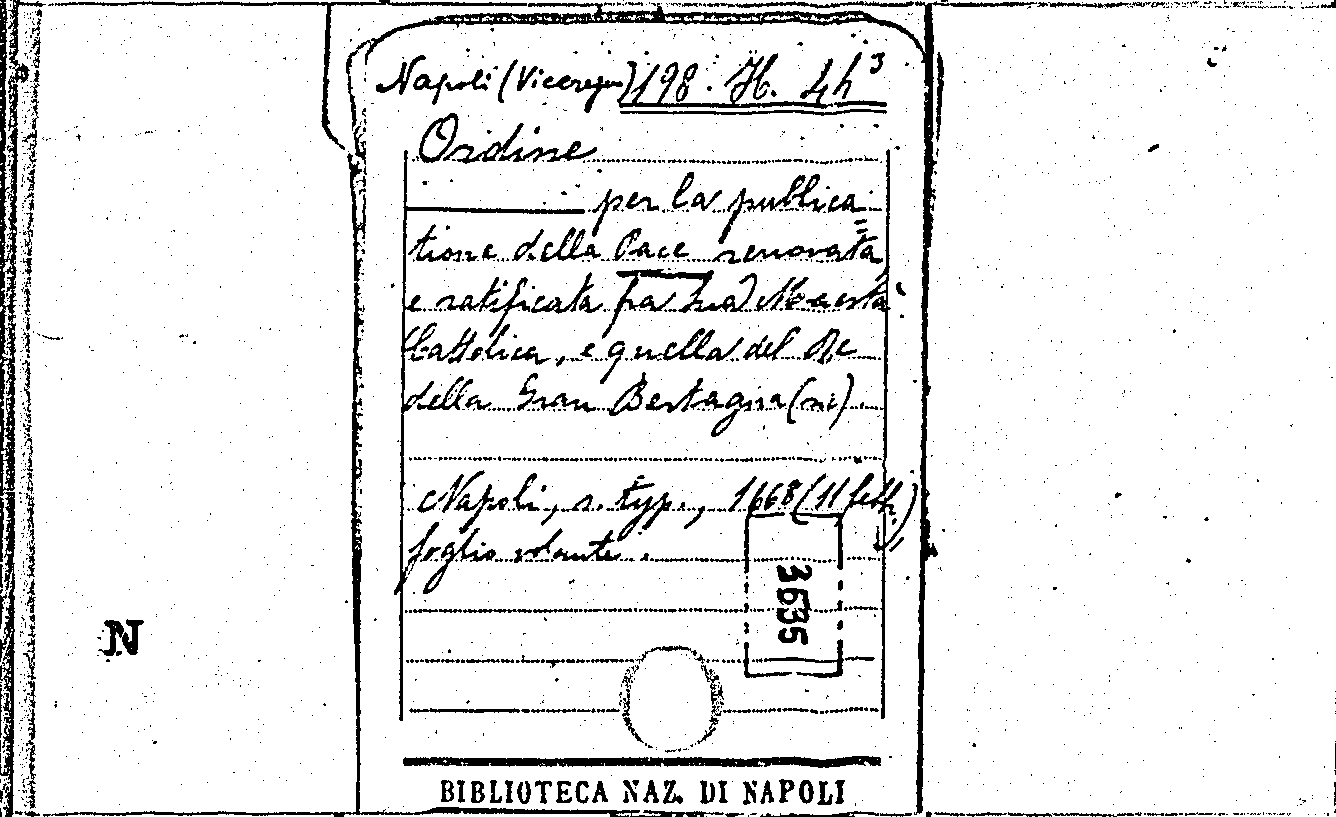 Napoli (Viceregno) 198. H. 4h³
Ordine
per la publica=
tione della Pace renovata,
e ratificata fra Sua Maestà
Cattolica, e quella del Re
della Gran Bertagna (sic).
Napoli, s. typ., 1668 (11 febb.)
foglio volante.
3635
N
BIBLIOTECA NAZ. DI NAPOLI